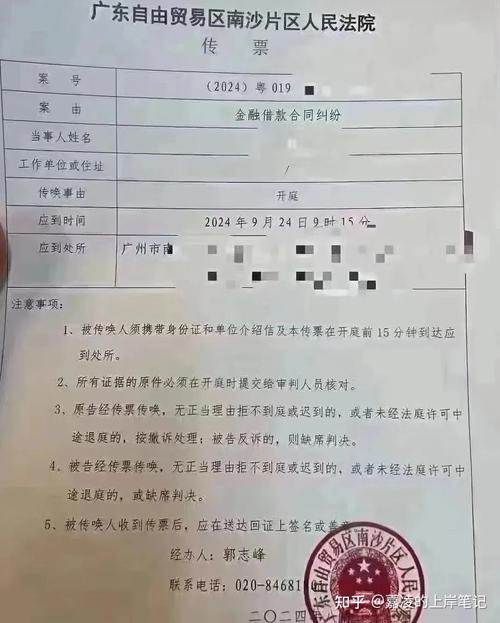 广东自由贸易区南沙片区人民法院
传 票
案 号 （2024）粤 019
案 由 金融借款合同纠纷
当事人姓名
工作单位或住址 /
传唤事由 开庭
应到时间 2024 年 9 月 24 日 9 时 15 分
应到处所 广州市南
注意事项：
1、被传唤人须携带身份证和单位介绍信及本传票在开庭前 15 分钟到达应
到处所。
2、所有证据的原件必须在开庭时提交给审判人员核对。
3、原告经传票传唤，无正当理由拒不到庭或迟到的，或者未经法庭许可中
途退庭的，按撤诉处理；被告反诉的，则缺席判决。
4、被告经传票传唤，无正当理由拒不到庭或迟到的，或者未经法庭许可中
途退庭的，或缺席判决。
5、被传唤人收到传票后，应在送达回证上签名或盖章
经办人： 郭志峰
联系电话：020-8468
二〇二四
广东自由贸易区南沙片区人民法院
知乎 @嘉凌的上岸笔记